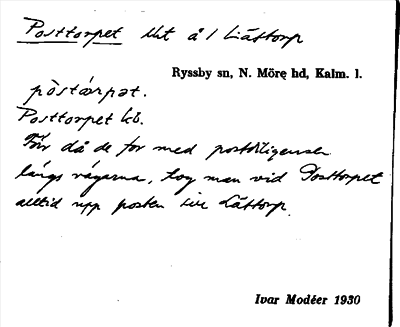 Posttorpet tht å / Låttorp
Ryssby sn, N. Möre hd, Kalm. l.
pòstårpət.
Posttorpet kb.
Förr då de for med postdiligensen
längs vägarna, tog man vid Posttorpet
alltid upp posten till Låttorp.
Ivar Modéer 1930